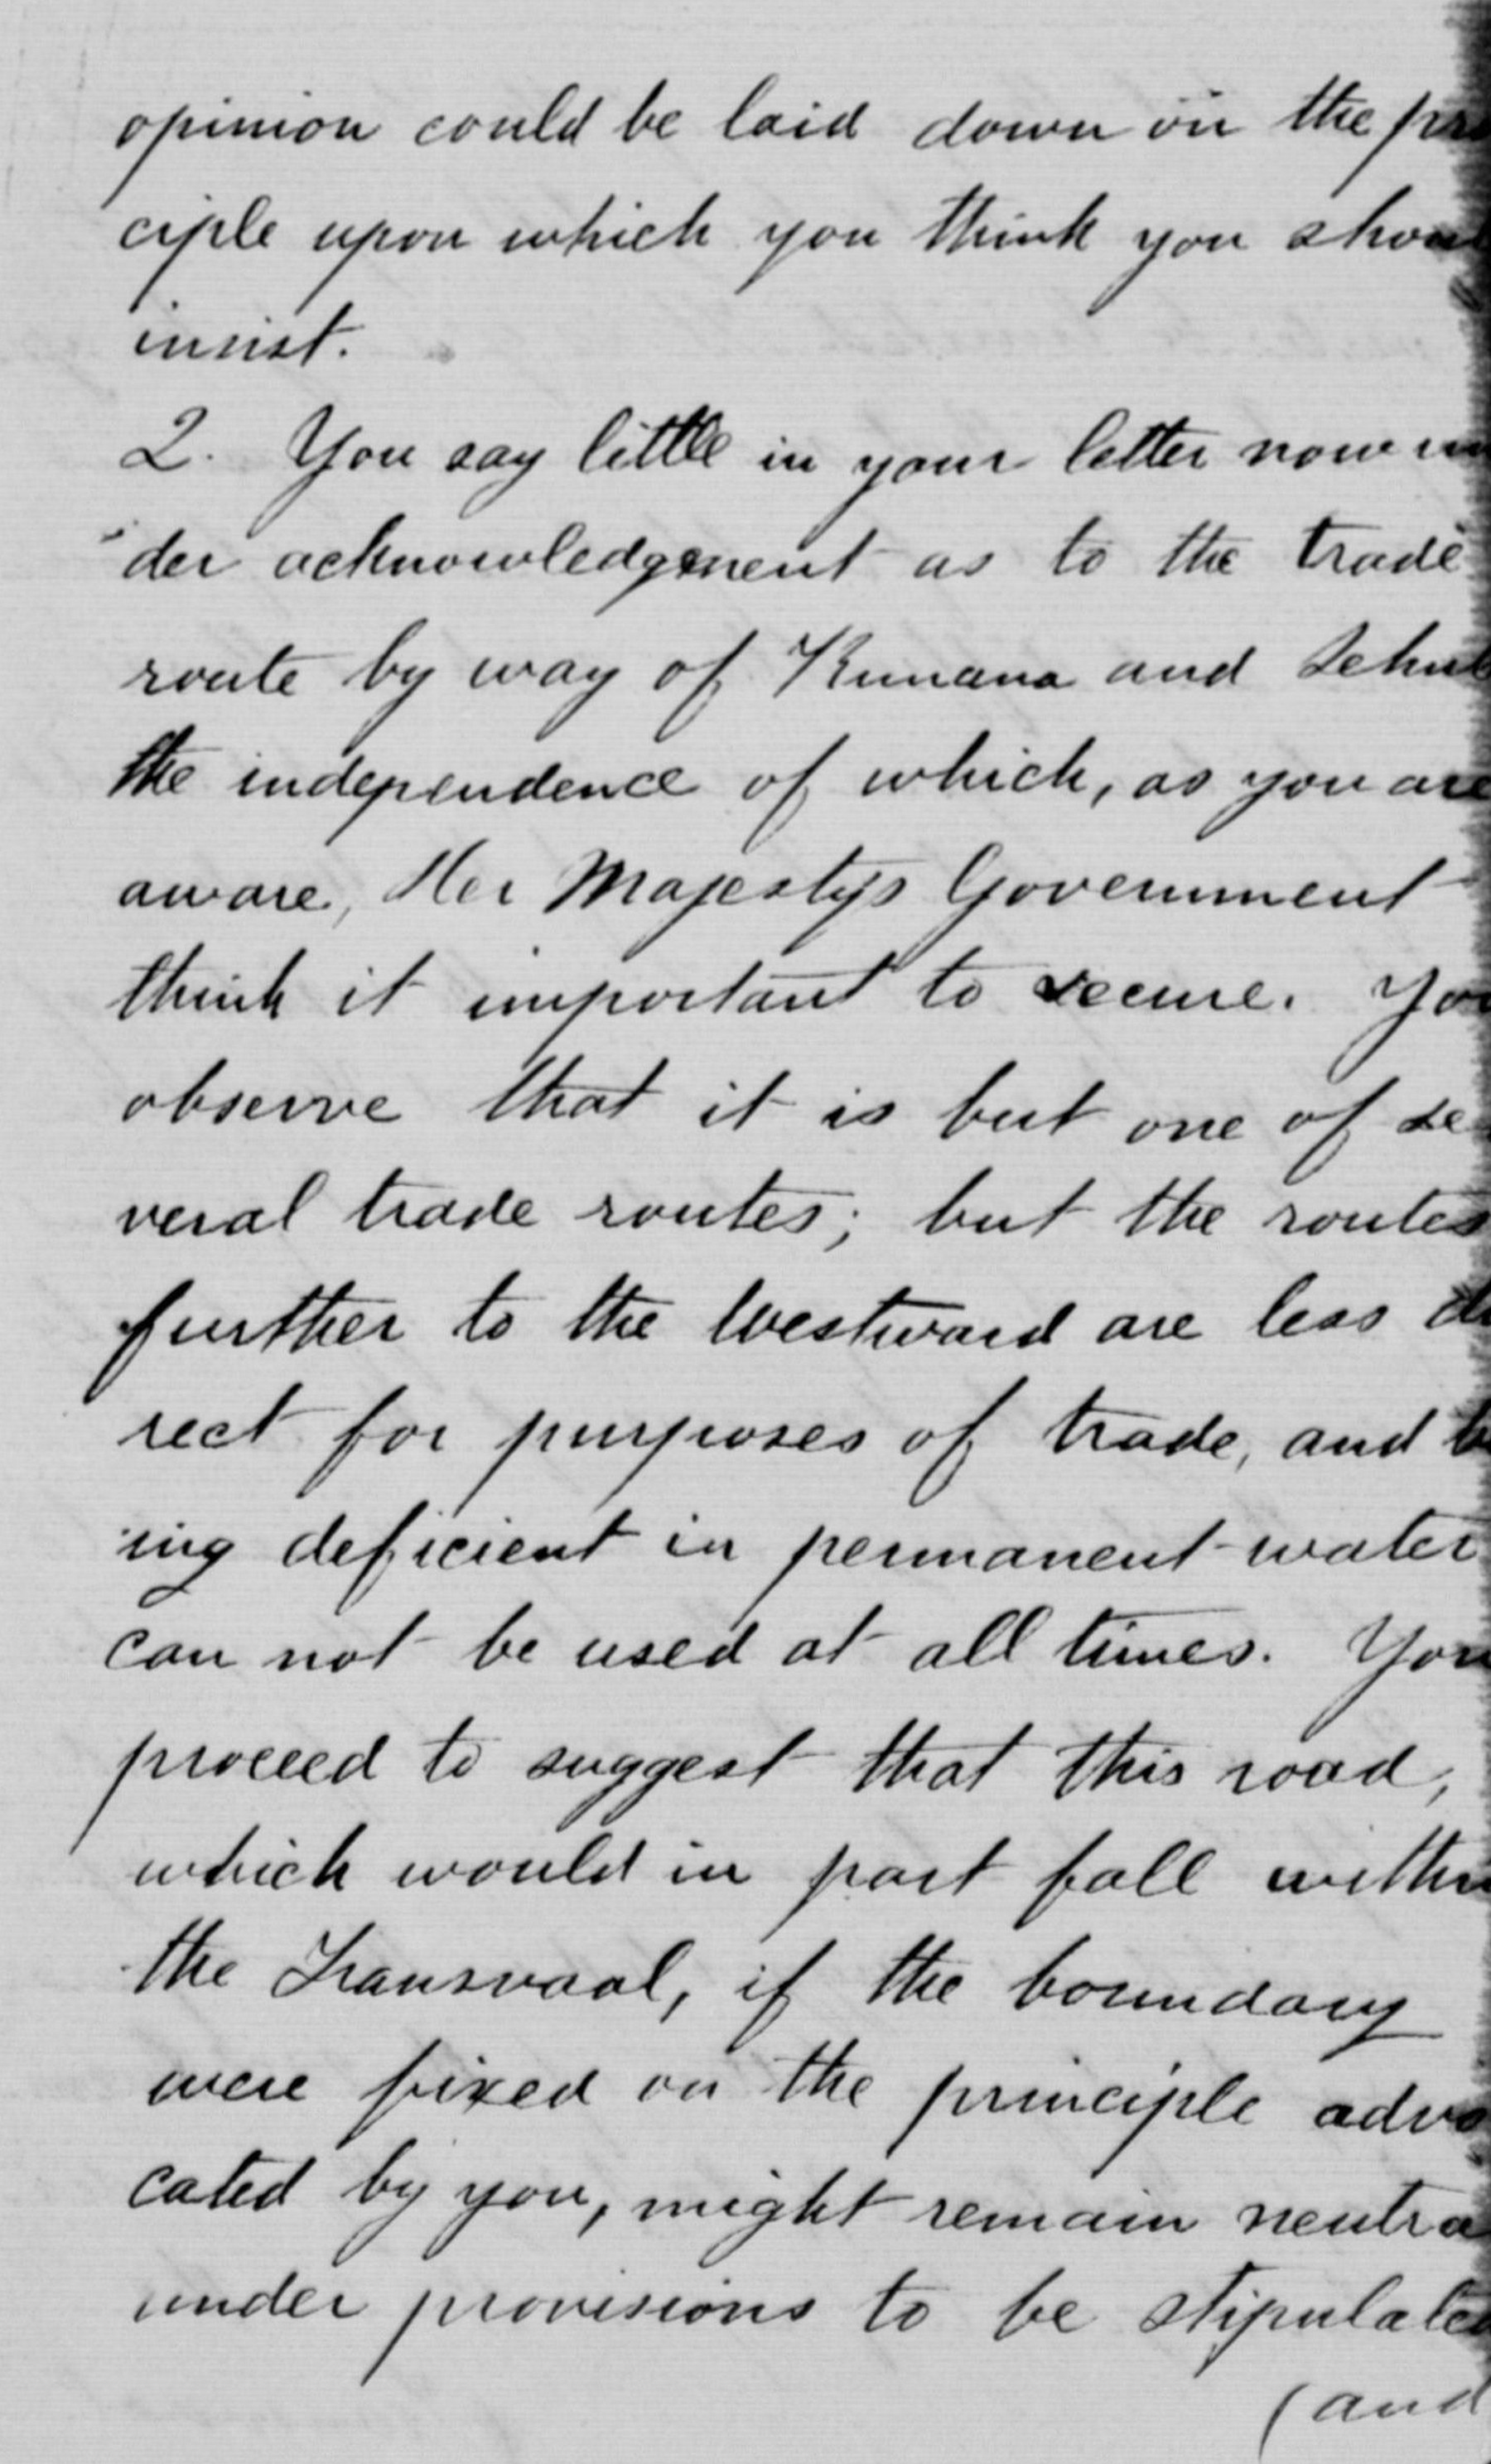 opinion could be laid down on the
ciple upon which you think you
insist.
2. You say little in your letter now un
der acknowledgement as to the trade
route by way of Kunana and
the independence of which, as you are
aware, Her Majesty's Government
think it important to secure. You
observe that it is but one of se
veral trade routes; but the routes
further to the Westward are less di
rect for purposes of trade, and be
ing deficient in permanent water
can not be used at all times. You
proceed to suggest that this road,
which would in part fall within
the Transvaal, if the boundary
were fixed on the principle advo
cated by you, might remain neutral
under provisions to be stipulated
(and